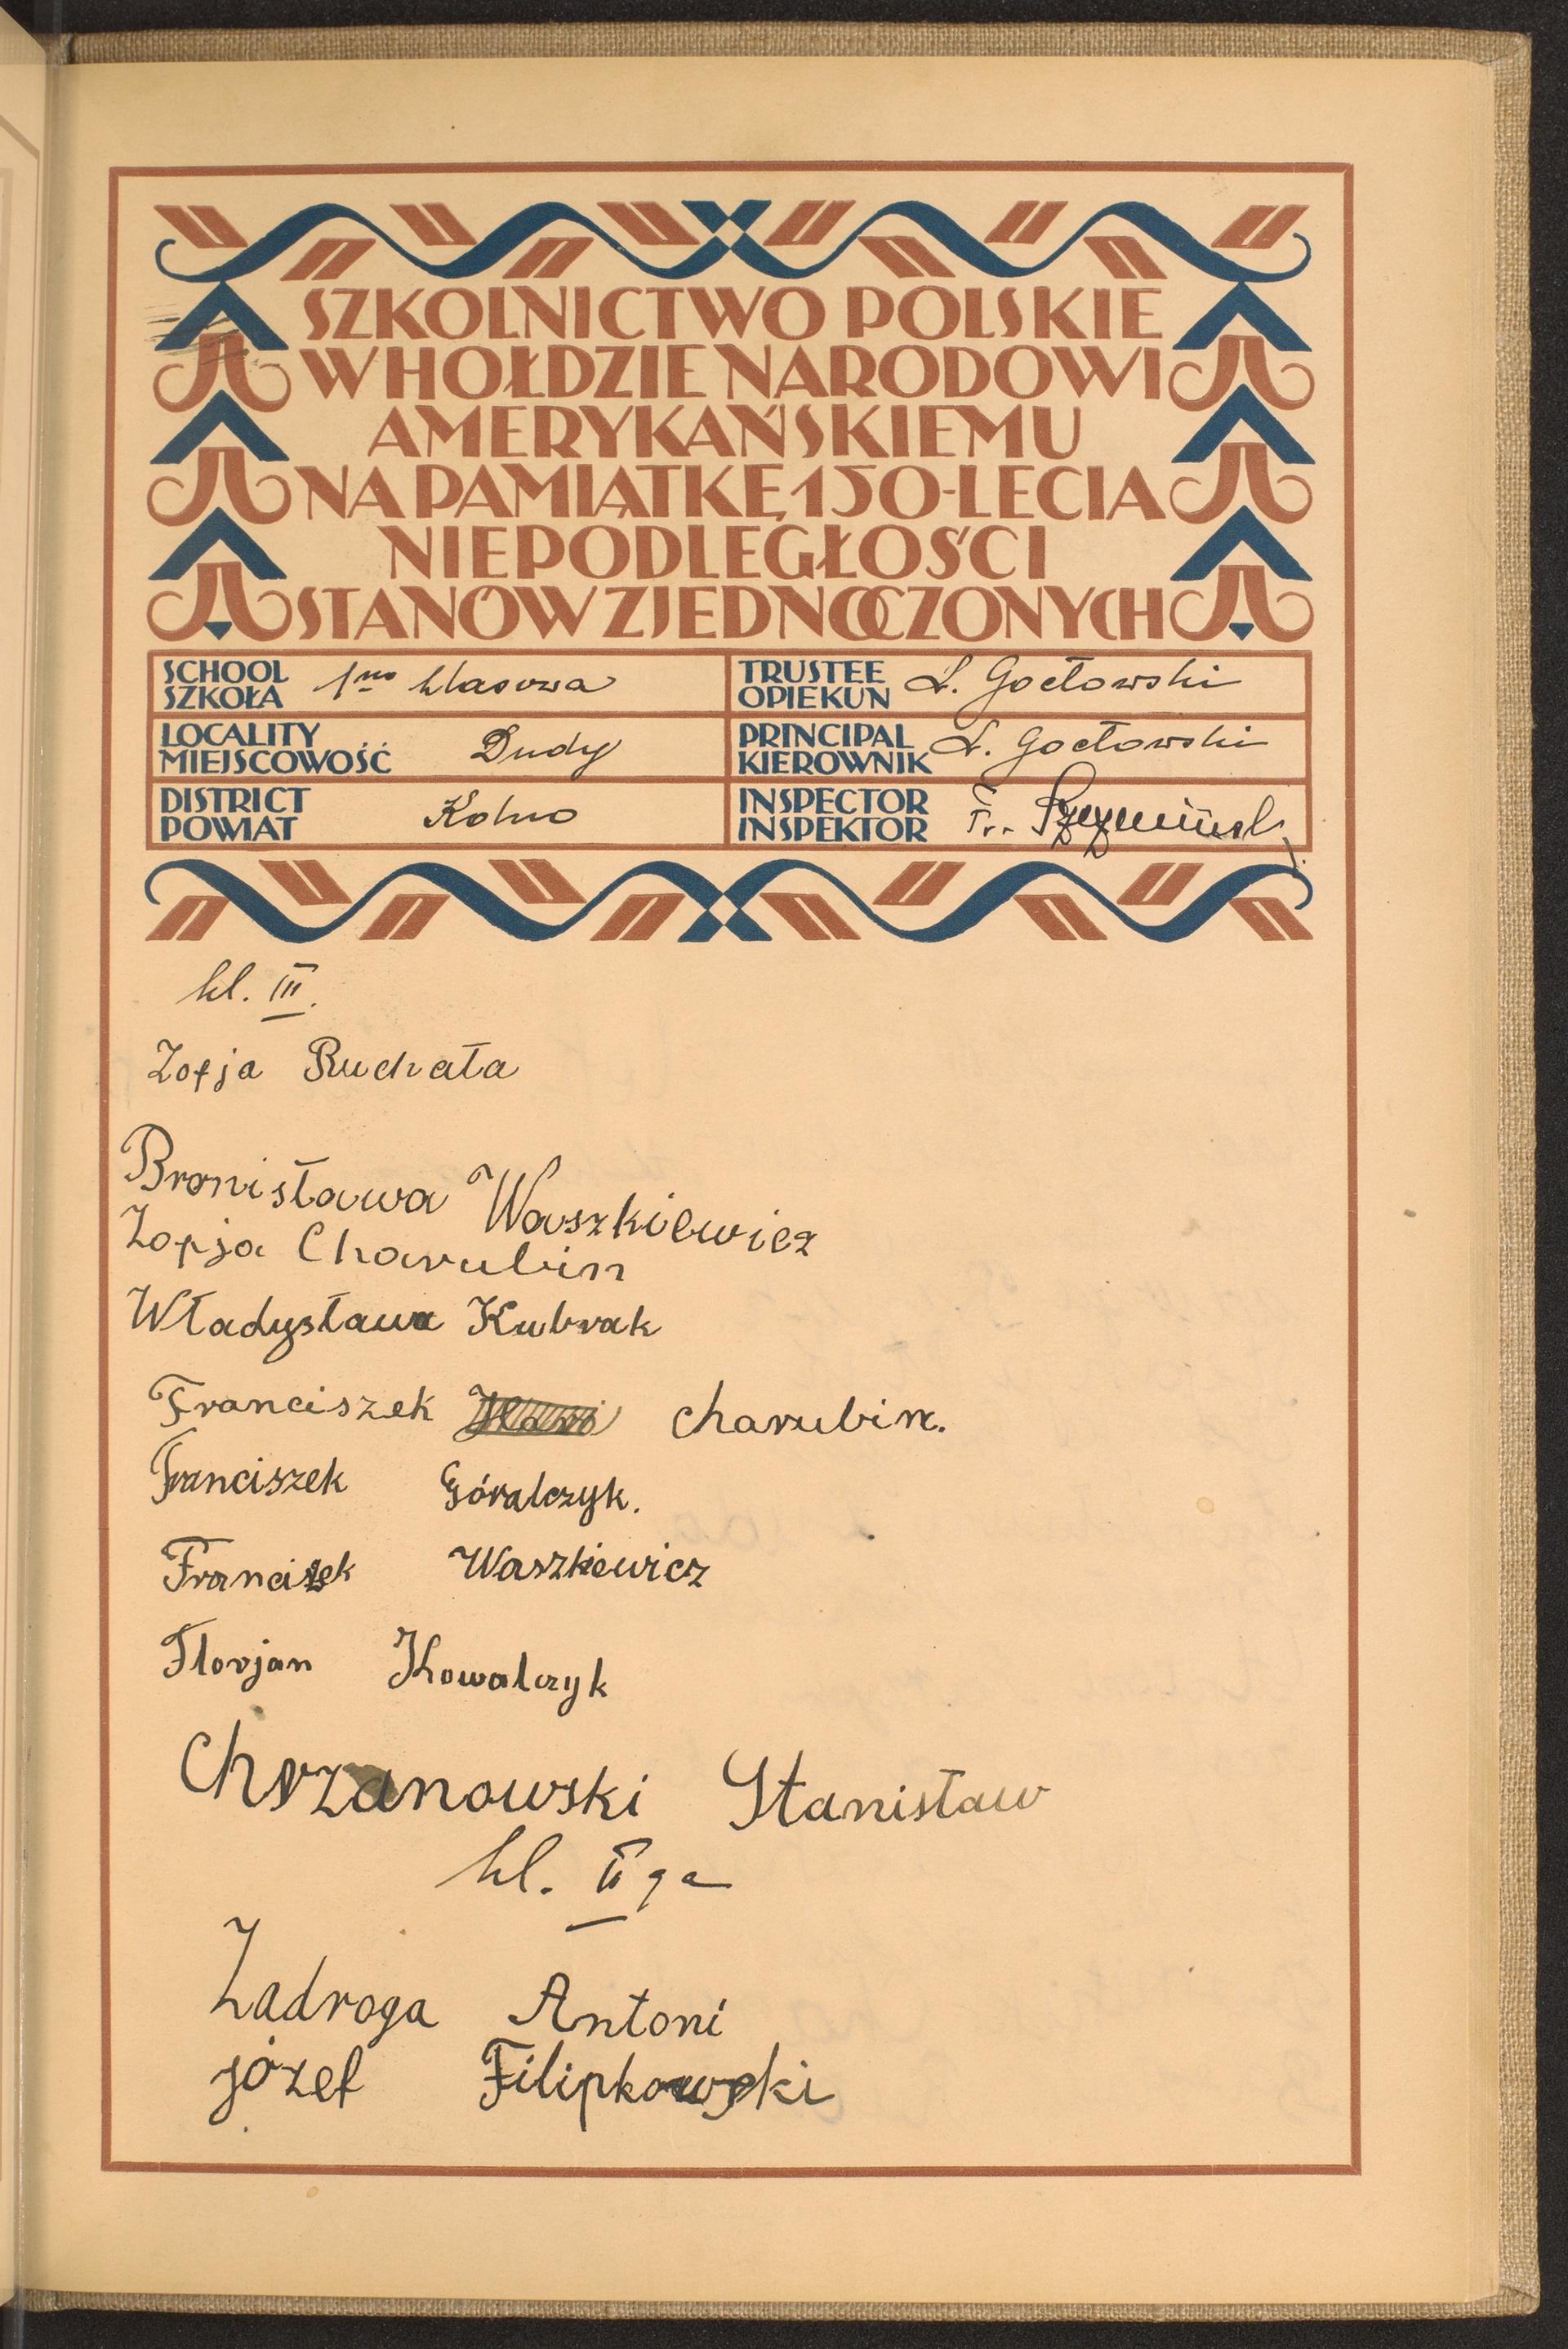 SZKOLNICTWO POLSKIE
W HOŁDZIE NARODOWI
AMERYKAŃSKIEMU
NA PAMIĄTKĘ 150-LECIA
NIEPODLEGŁOŚCI
STANÓW ZJEDNOCZONYCH
SCHOOL
SZKOŁA 1no klasowa
TRUSTEE
OPIEKUN L. Gocłowski
LOCALITY
MIEJSCOWOŚĆ Dudy
PRINCIPAL
KIEROWNIK L. Gocłowski
DISTRICT
POWIAT Kolno
INSPECTOR
INSPEKTOR Fr.
kl. III.
Zofja Ruchała
Bronisława Waszkiewicz
Zofja Charubin
Władysława Kubrak
Franciszek Charubin.
Franciszek Góralczyk.
Franciszek Waszkiewicz
Florjan Kowalczyk
Chrzanowski Stanisław
kl. II ga
Zadroga Antoni
józef Filipkowski